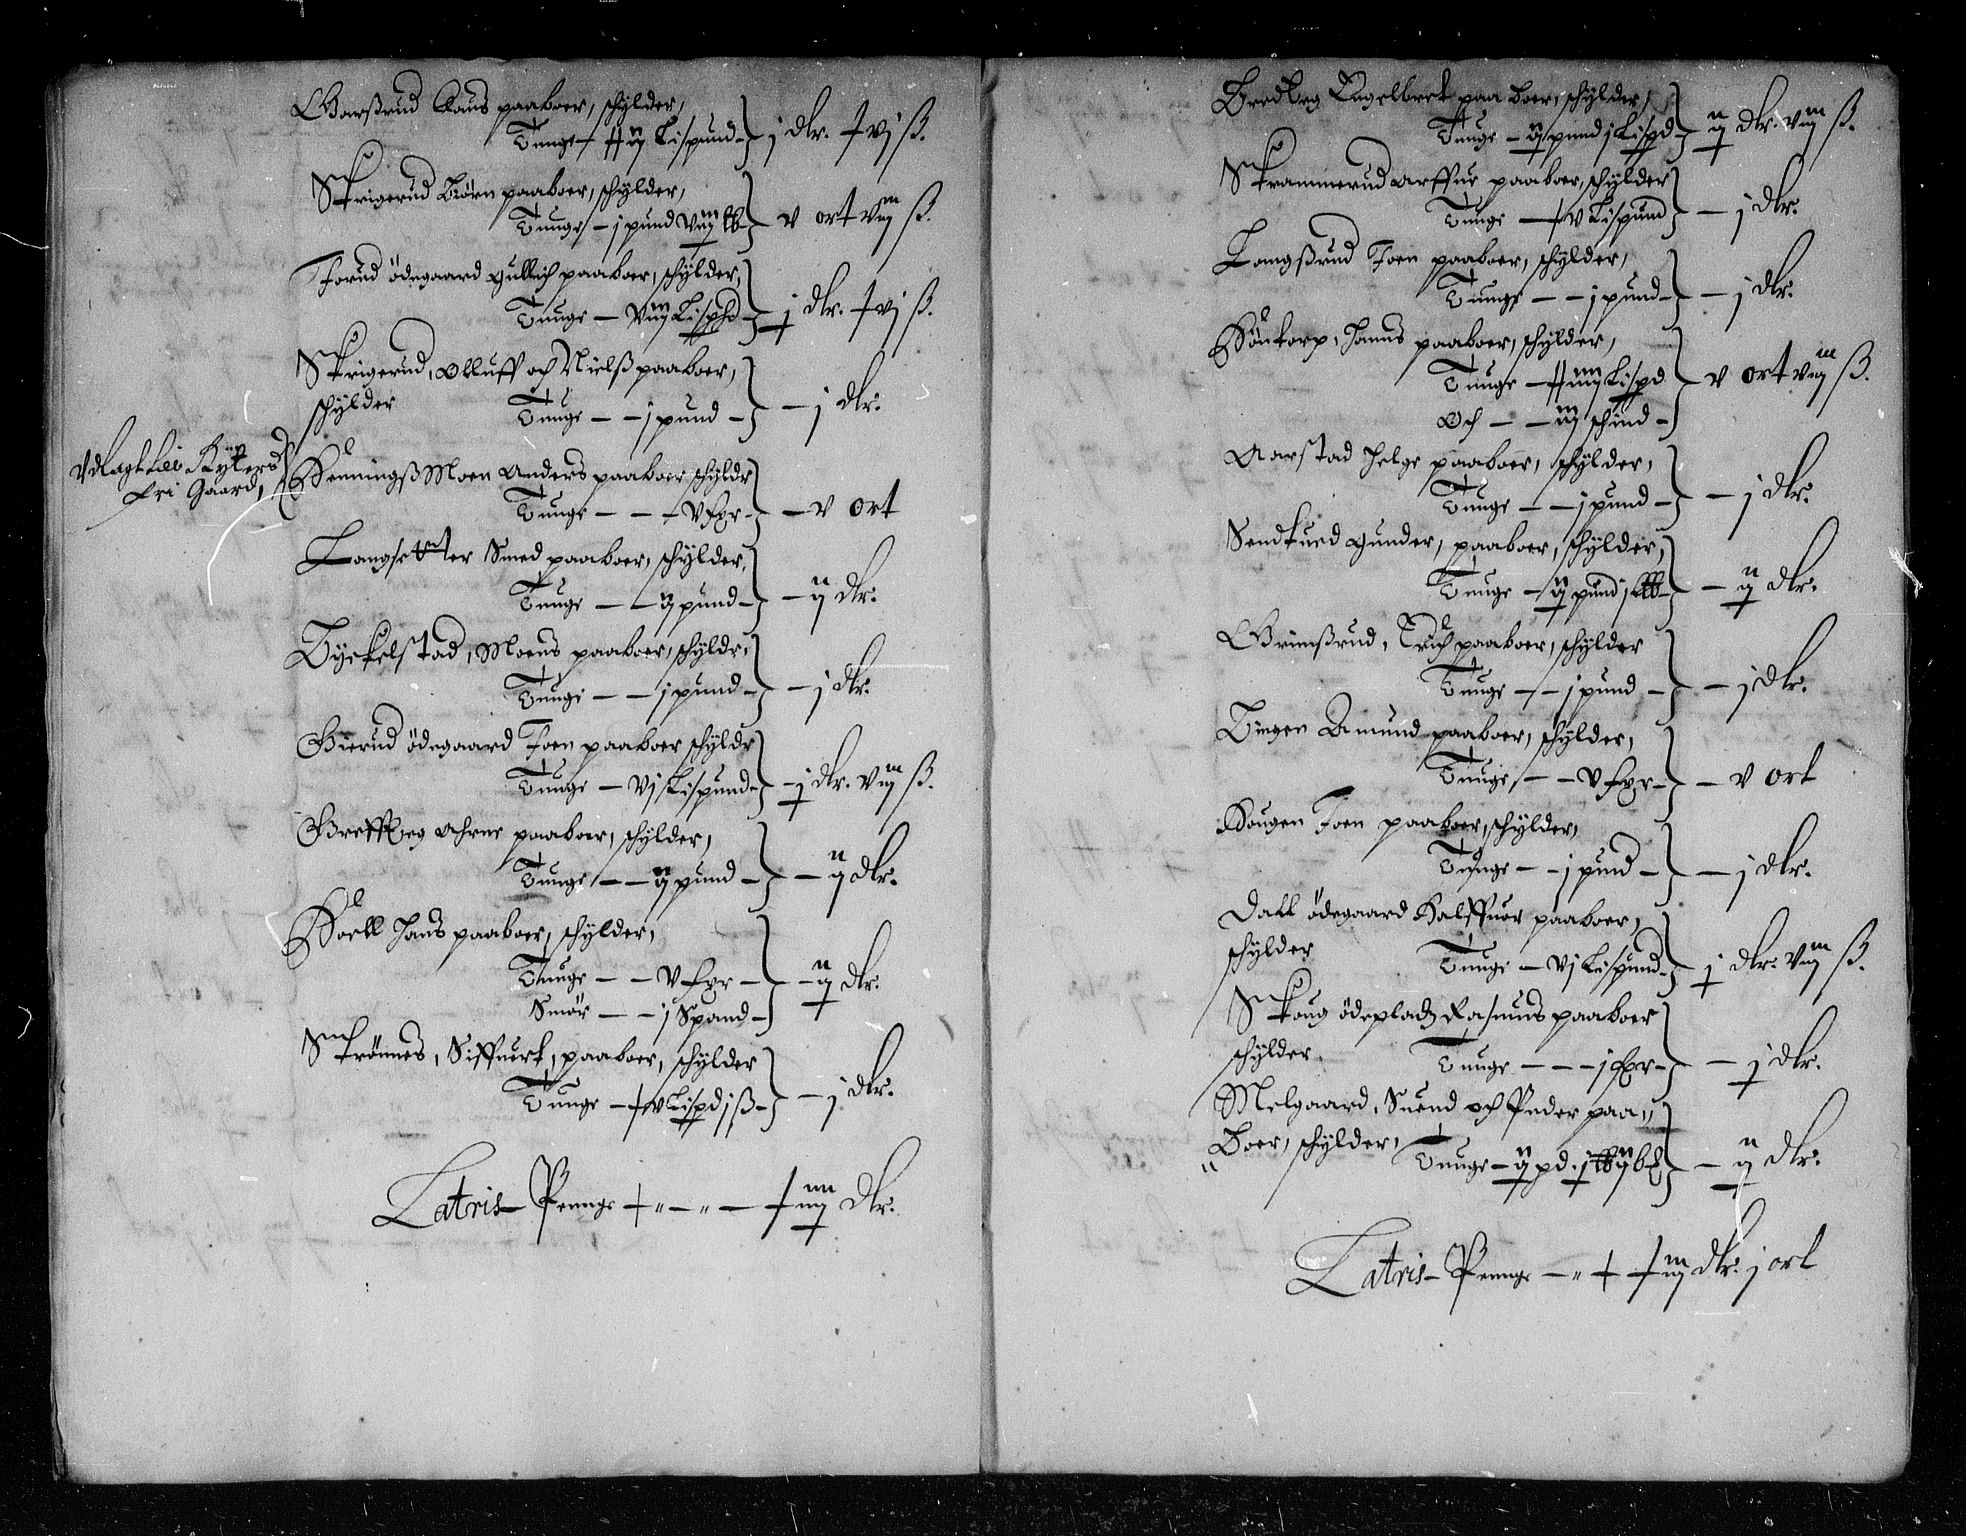 Garßrud Claus paaboer, schylder,
Tunge – Lispund – j dlr. vj ß.
Skrigerud Biörn paaboer, schylder,
Tunge – j pund viij lb – v ort viij ß.
Forud ödegaard Gullich paaboer, schylder,
Tunge – viij Lispd – j dlr. vj ß.
Skrigerud, Olluff och Nielß paaboer,
schylder Tunge – – j pund – – j dlr.
Vdlagt till Rytters
fri Gaard,
Henningß Moen Anders paaboer schyldr
Tunge – – – v fxr – – v ort
Langsetter Smed paaboer, schylder,
Tunge – – ij pund – – ij dlr.
Tyckelstad, Moens paaboer, schyldr,
Tunge – – j pund – – j dlr.
Gierud ödegaard Joen paaboer schyldr
Tunge – vj Lispund – – j dlr. viij ß.
Greffßeg Ahrne paaboer, schylder,
Tunge – – ij pund – – ij dlr.
Hoell Hans paaboer, schylder,
Tunge – – v fxr – – ij dlr.
Smör – – j Spand –
Strönnes, Siffuert, paaboer, schylder
Tunge – v Lispd j ß – – j dlr.
Latris – Penge – – – iiij dlr.
Bredbeg Engelbret paa boer, schylder,
Tunge – ij pund j Lispd – ij dlr. viij ß.
Skrammerud Arffue paaboer, schylder
Tunge – v Lispund – j dlr.
Langßrud Joen paaboer, schylder,
Tunge – – j pund – – j dlr.
Höntorp, Hanns paaboer, schylder,
Tunge – iiij Lispd v ort viij ß.
Och – – iij schind –
Aarstad Helge paaboer, schylder,
Tunge – – j pund – – j dlr.
Sendkurd Gunder, paaboer, schylder,
Tunge – ij pund j lb – – ij dlr.
Grimßrud, Erich paaboer, schylder
Tunge – – j pund – – j dlr.
Tingen Amund paaboer, schylder,
Tunge, – – v fxr – – v ort
Hougen Joen paaboer, schylder,
Tunge – – j pund – – j dlr.
Dall ödegaard Halffuor paaboer,
schylder Tunge – vj Lispund – j dlr. viij ß.
Skoug ödepladz Rasmus paaboer
schylder Tunge – – – j fxr – – j dlr.
Melgaard, Suend och Peder paa„
„Boer, schylder, Tunge – ij pd. – ij dlr.
Latris – Penge – iij dlr. j ort